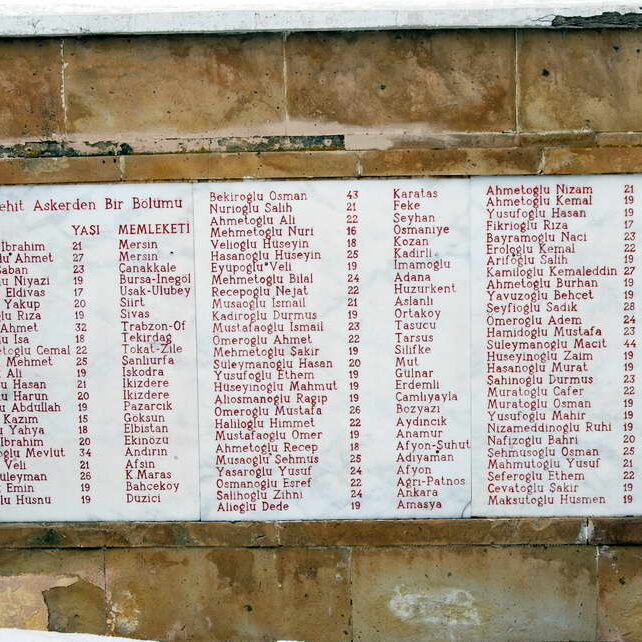 ehit Askerden Bir Bölümü
YAŞI MEMLEKETİ
Ibrahim 21 Mersin
Ahmet 27 Mersin
Şaban 23 Çanakkale
Niyazi 19 Bursa-Inegöl
Eldivas 17 Uşak-Ulubey
Yakup 20 Siirt
Rıza 19 Sivas
Ahmet 32 Trabzon-Of
Isa 18 Tekirdag
Cemal 22 Tokat-Zile
Mehmet 25 Şanlıurfa
Ali 19 Iskodra
Hasan 21 Ikizdere
Harun 20 Ikizdere
Abdullah 19 Pazarcık
Kazım 15 Göksun
Yahya 18 Elbistan
Ibrahim 20 Ekinözü
Mevlut 34 Andırın
Veli 21 Afşin
26 K.Maraş
Emin 19 Bahceköy
Husnu 19 Duzici
Bekiroglu Osman 43 Karatas
Nurioglu Salih 21 Feke
Ahmetoglu Ali 22 Seyhan
Mehmetoglu Nuri 16 Osmaniye
Velioglu Hüseyin 18 Kozan
Hasanoglu Hüseyin 25 Kadirli
Eyüpoglu Veli 19 Imamoglu
Mehmetoglu Bilal 24 Adana
Recepoglu Nejat 22 Huzurkent
Musaoglu Ismail 21 Aslanlı
Kadiroglu Durmus 19 Ortaköy
Mustafaoglu Ismail 23 Tasucu
Ömeroglu Ahmet 22 Tarsus
Mehmetoglu Şakir 19 Silifke
Süleymanoglu Hasan 20 Mut
Yusufoglu Ethem 19 Gülnar
Hüseyinoglu Mahmut 19 Erdemli
Aliosmanoglu Ragıp 19 Camlıyayla
Ömeroglu Mustafa 26 Bozyazı
Haliloglu Himmet 22 Aydıncık
Mustafaoglu Ömer 19 Anamur
Ahmetoglu Recep 18 Afyon-Şuhut
Musaoglu Şehmus 25 Adıyaman
Yasaroglu Yusuf 24 Afyon
Osmanoglu Esref 22 Agrı-Patnos
Salihoglu Zihni 24 Ankara
Alioglu Dede 19 Amasya
Ahmetoglu Nizam 21
Ahmetoglu Kemal 19
Yusufoglu Hasan 19
Fikrioglu Rıza 17
Bayramoglu Naci 23
Erologlu Kemal 22
Arifoglu Salih 19
Kamiloglu Kemaleddin 27
Ahmetoglu Burhan 19
Yavuzoglu Behcet 19
Seyfioglu Sadık 28
Ömeroglu Adem 24
Hamidoglu Mustafa 23
Süleymanoglu Macit 44
Hüseyinoglu Zaim 19
Hasanoglu Murat 19
Şahinoglu Durmus 23
Muratoglu Cafer 22
Muratoglu Osman 19
Yusufoglu Mahir 19
Nizameddinoglu Ruhi 19
Nafizoglu Bahri 20
Şehmusoglu Osman 25
Mahmutoglu Yusuf 21
Seferoglu Ethem 22
Cevatoglu Şakir 19
Maksutoglu Husmen 19